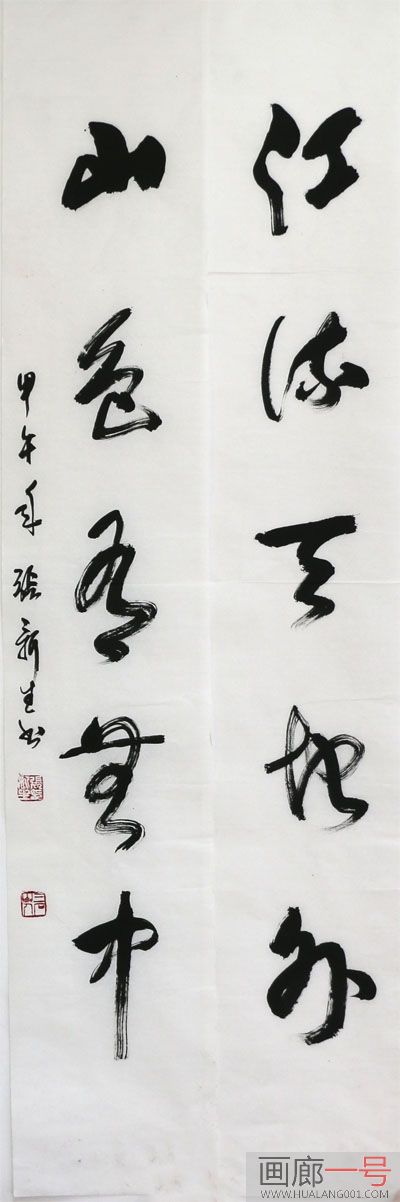 江流天地外
山色有無中
甲午年張新生书
画廊一号
WWW.HUALANG001.COM